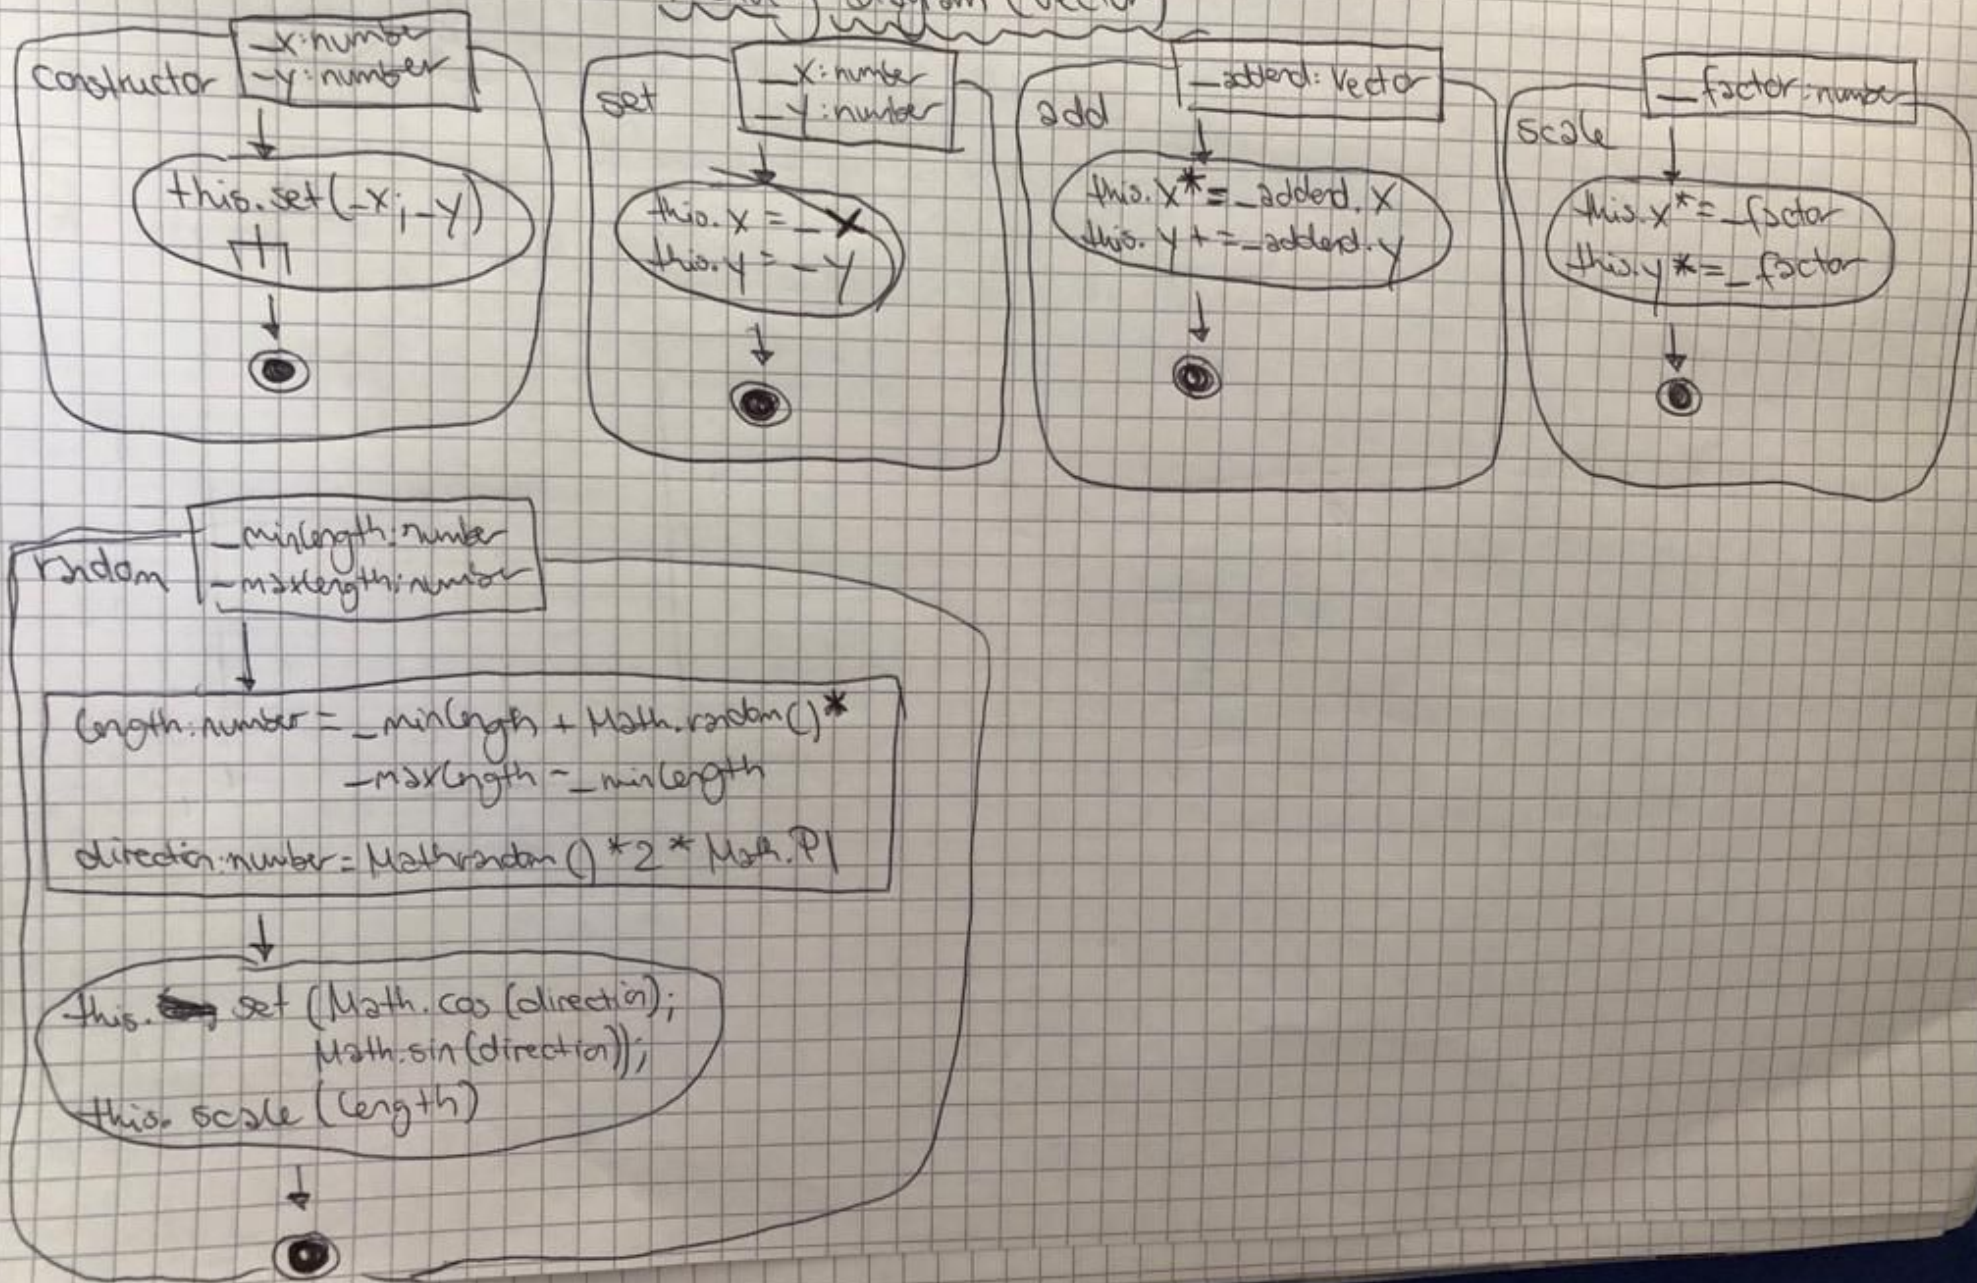 Diagram (Vector)
constructor
_x:number
_y:number
this.set(_x;_y)
set
_x:number
_y:number
this.x = _x
this.y = _y
add
_addend: Vector
this.x*=_addend.x
this.y+=_addend.y
scale
_factor:number
this.x*=_factor
this.y*=_factor
random
_minlength:number
_maxlength:number
length:number = _minlength + Math.random()*
_maxlength - _minlength
direction:number = Math random () *2* Math.PI
this. set (Math.cos(direction);
Math.sin(direction));
this.scale (length)